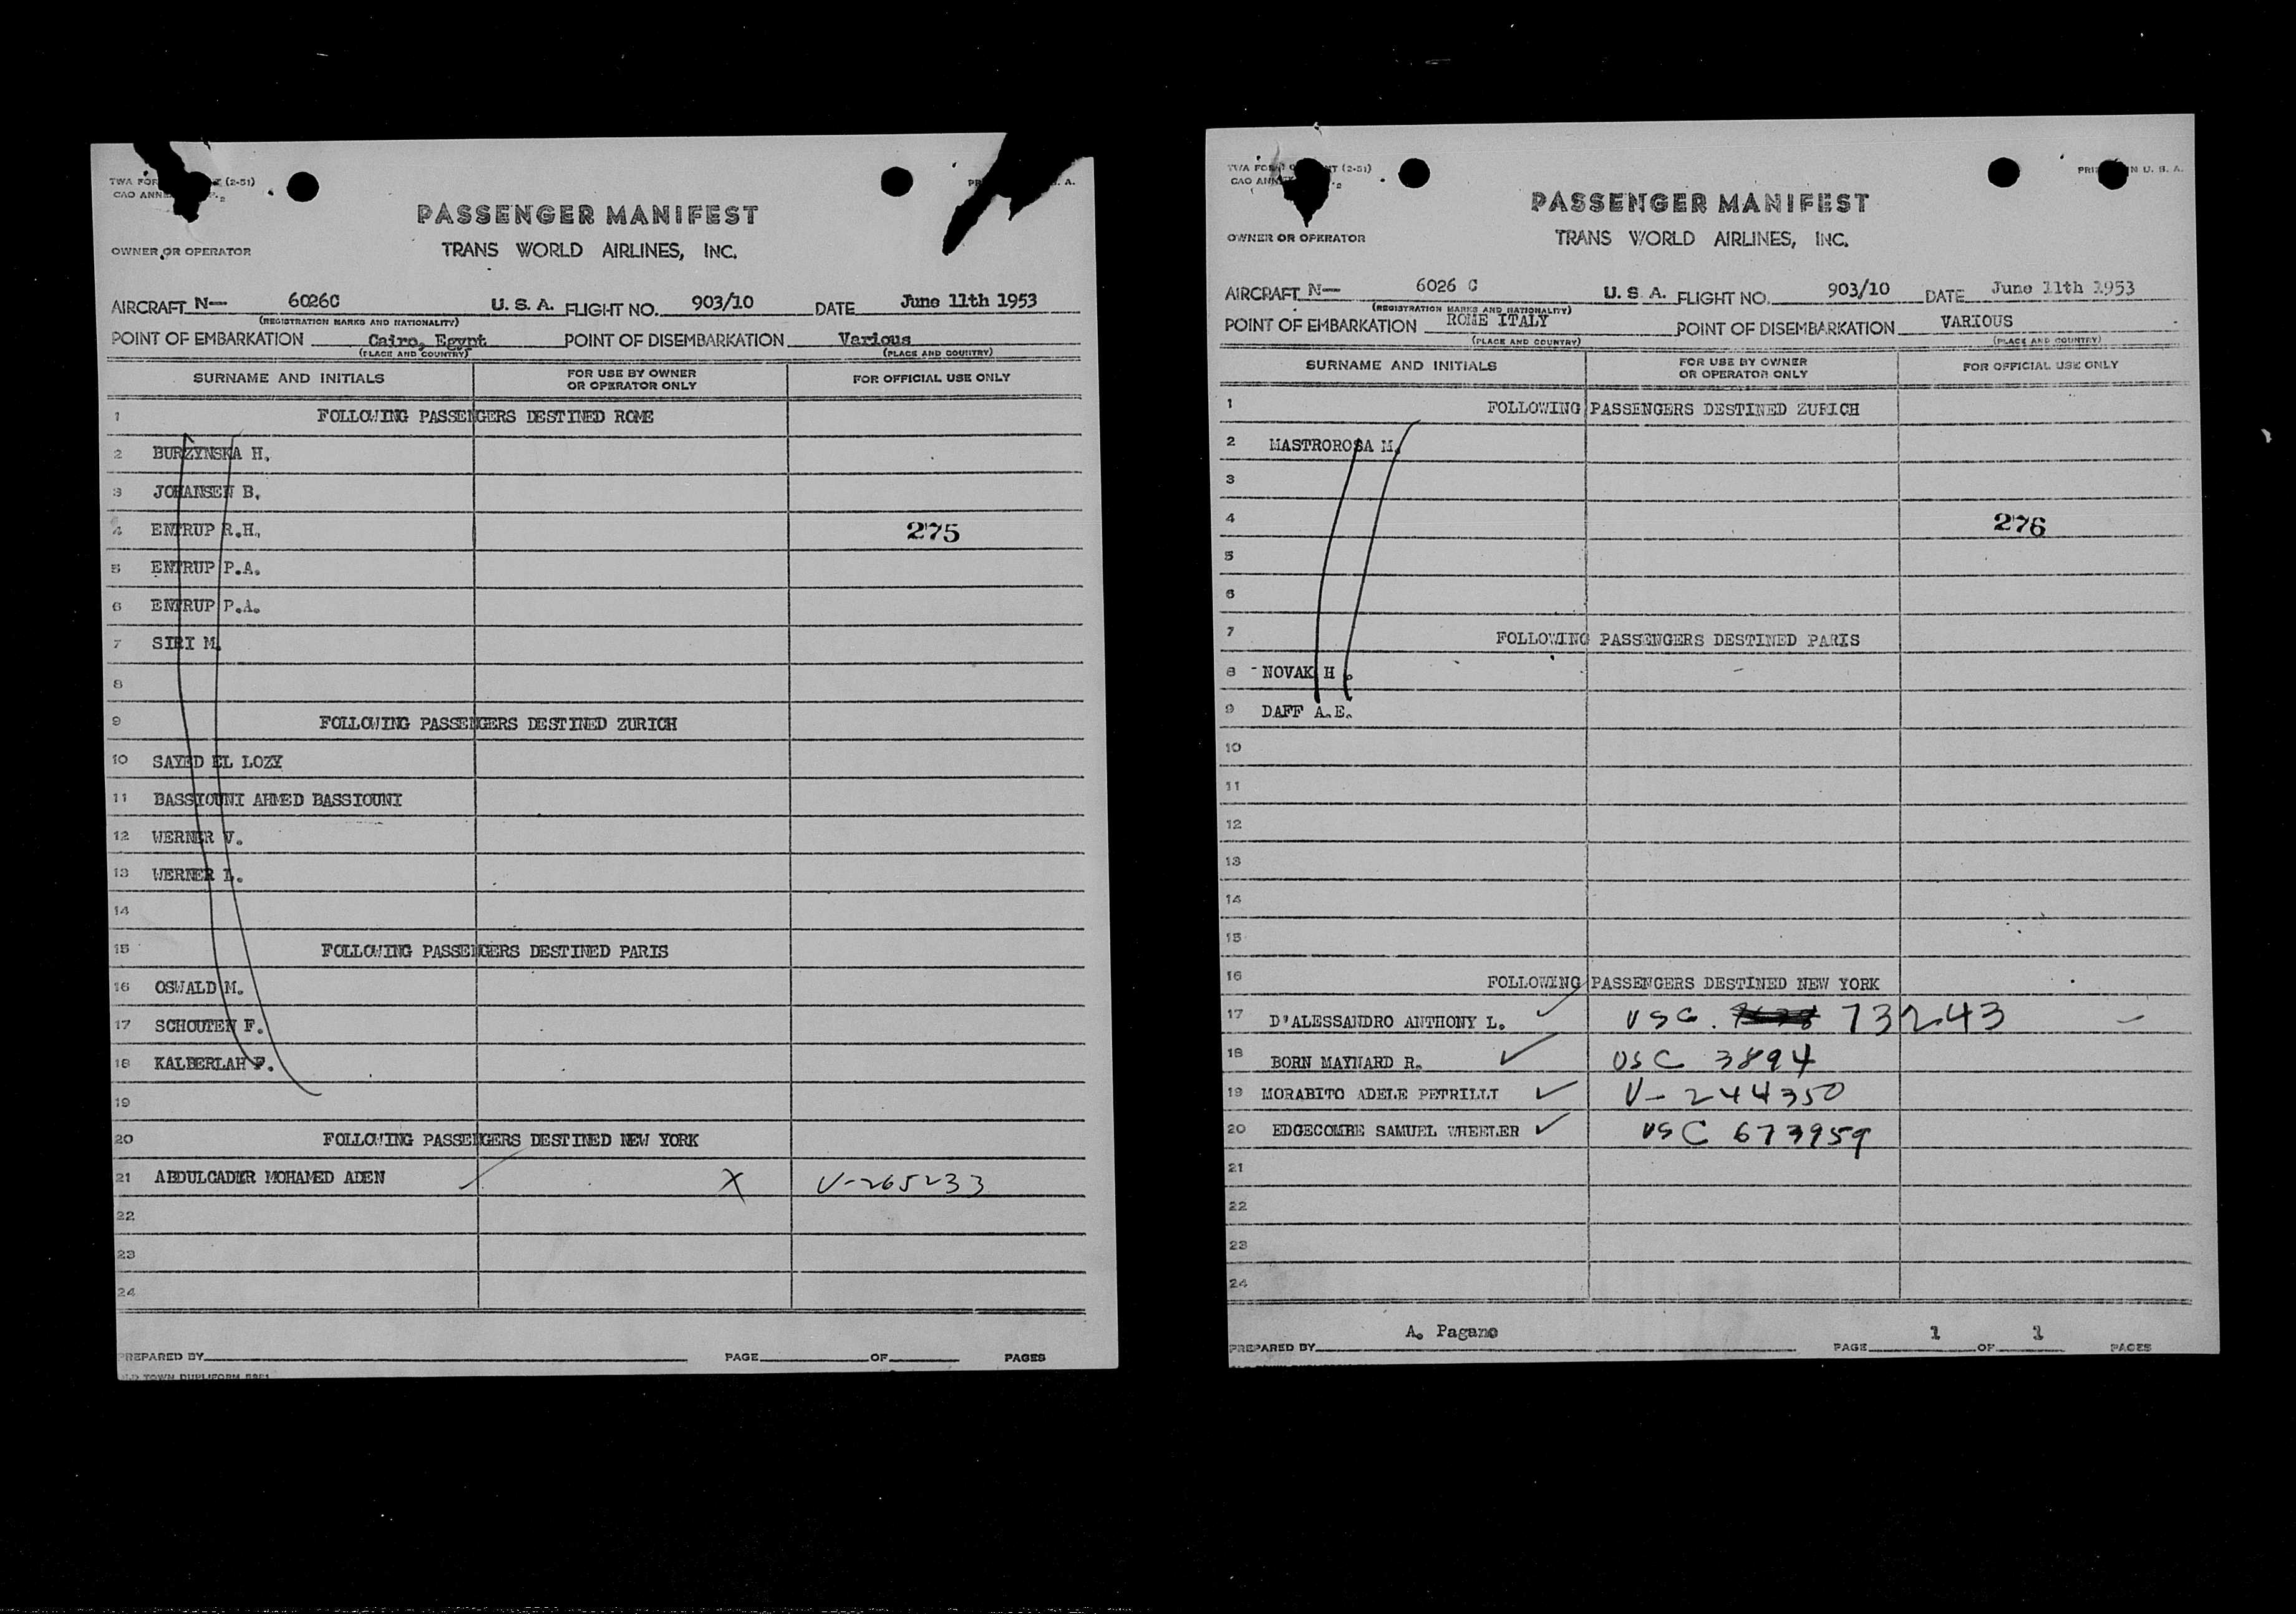 TWA FOR (2-51)
CAO ANNE -2
PASSENGER MANIFEST
OWNER OR OPERATOR
TRANS WORLD AIRLINES, INC.
AIRCRAFT N— 6026C U. S. A. FLIGHT NO. 903/10 DATE June 11th 1953
(REGISTRATION MARKS AND NATIONALITY)
POINT OF EMBARKATION Cairo, Egypt POINT OF DISEMBARKATION Various
(PLACE AND COUNTRY) (PLACE AND COUNTRY)
SURNAME AND INITIALS FOR USE BY OWNER OR OPERATOR ONLY FOR OFFICIAL USE ONLY
1 FOLLOWING PASSENGERS DESTINED ROME
2 BURZYNSKA H.
3 JOHANSEN B.
4 ENTRUP R.H. 275
5 ENTRUP P.A.
6 ENTRUP P.A.
7 SIRI M.
8
9 FOLLOWING PASSENGERS DESTINED ZURICH
10 SAYED EL LOZY
11 BASSIOUNI AHMED BASSIOUNI
12 WERNER V.
13 WERNER L.
14
15 FOLLOWING PASSENGERS DESTINED PARIS
16 OSWALD M.
17 SCHOUTEN F.
18 KALBERLAH F.
19
20 FOLLOWING PASSENGERS DESTINED NEW YORK
21 ABDULCADIR MOHAMED ADEN X V-265233
22
23
24
PREPARED BY PAGE OF PAGES
TOWN DUPLIFORM
TWA FORM (2-51)
CAO ANN -2
PRI N U. S. A.
PASSENGER MANIFEST
OWNER OR OPERATOR
TRANS WORLD AIRLINES, INC.
AIRCRAFT N— 6026 C U. S. A. FLIGHT NO. 903/10 DATE June 11th 1953
(REGISTRATION MARKS AND NATIONALITY)
POINT OF EMBARKATION ROME ITALY POINT OF DISEMBARKATION VARIOUS
(PLACE AND COUNTRY) (PLACE AND COUNTRY)
SURNAME AND INITIALS FOR USE BY OWNER OR OPERATOR ONLY FOR OFFICIAL USE ONLY
1 FOLLOWING PASSENGERS DESTINED ZURICH
2 MASTROROSA M.
3
4 276
5
6
7 FOLLOWING PASSENGERS DESTINED PARIS
8 NOVAK H.
9 DAFF A.E.
10
11
12
13
14
15
16 FOLLOWING PASSENGERS DESTINED NEW YORK
17 D'ALESSANDRO ANTHONY L. USC. 73243
18 BORN MAYNARD R. USC 3894
19 MORABITO ADELE PETRILLI V-244350
20 EDGECOMBE SAMUEL WHEELER USC 673959
21
22
23
24
A. Pagano 1 1
PREPARED BY PAGE OF PAGES